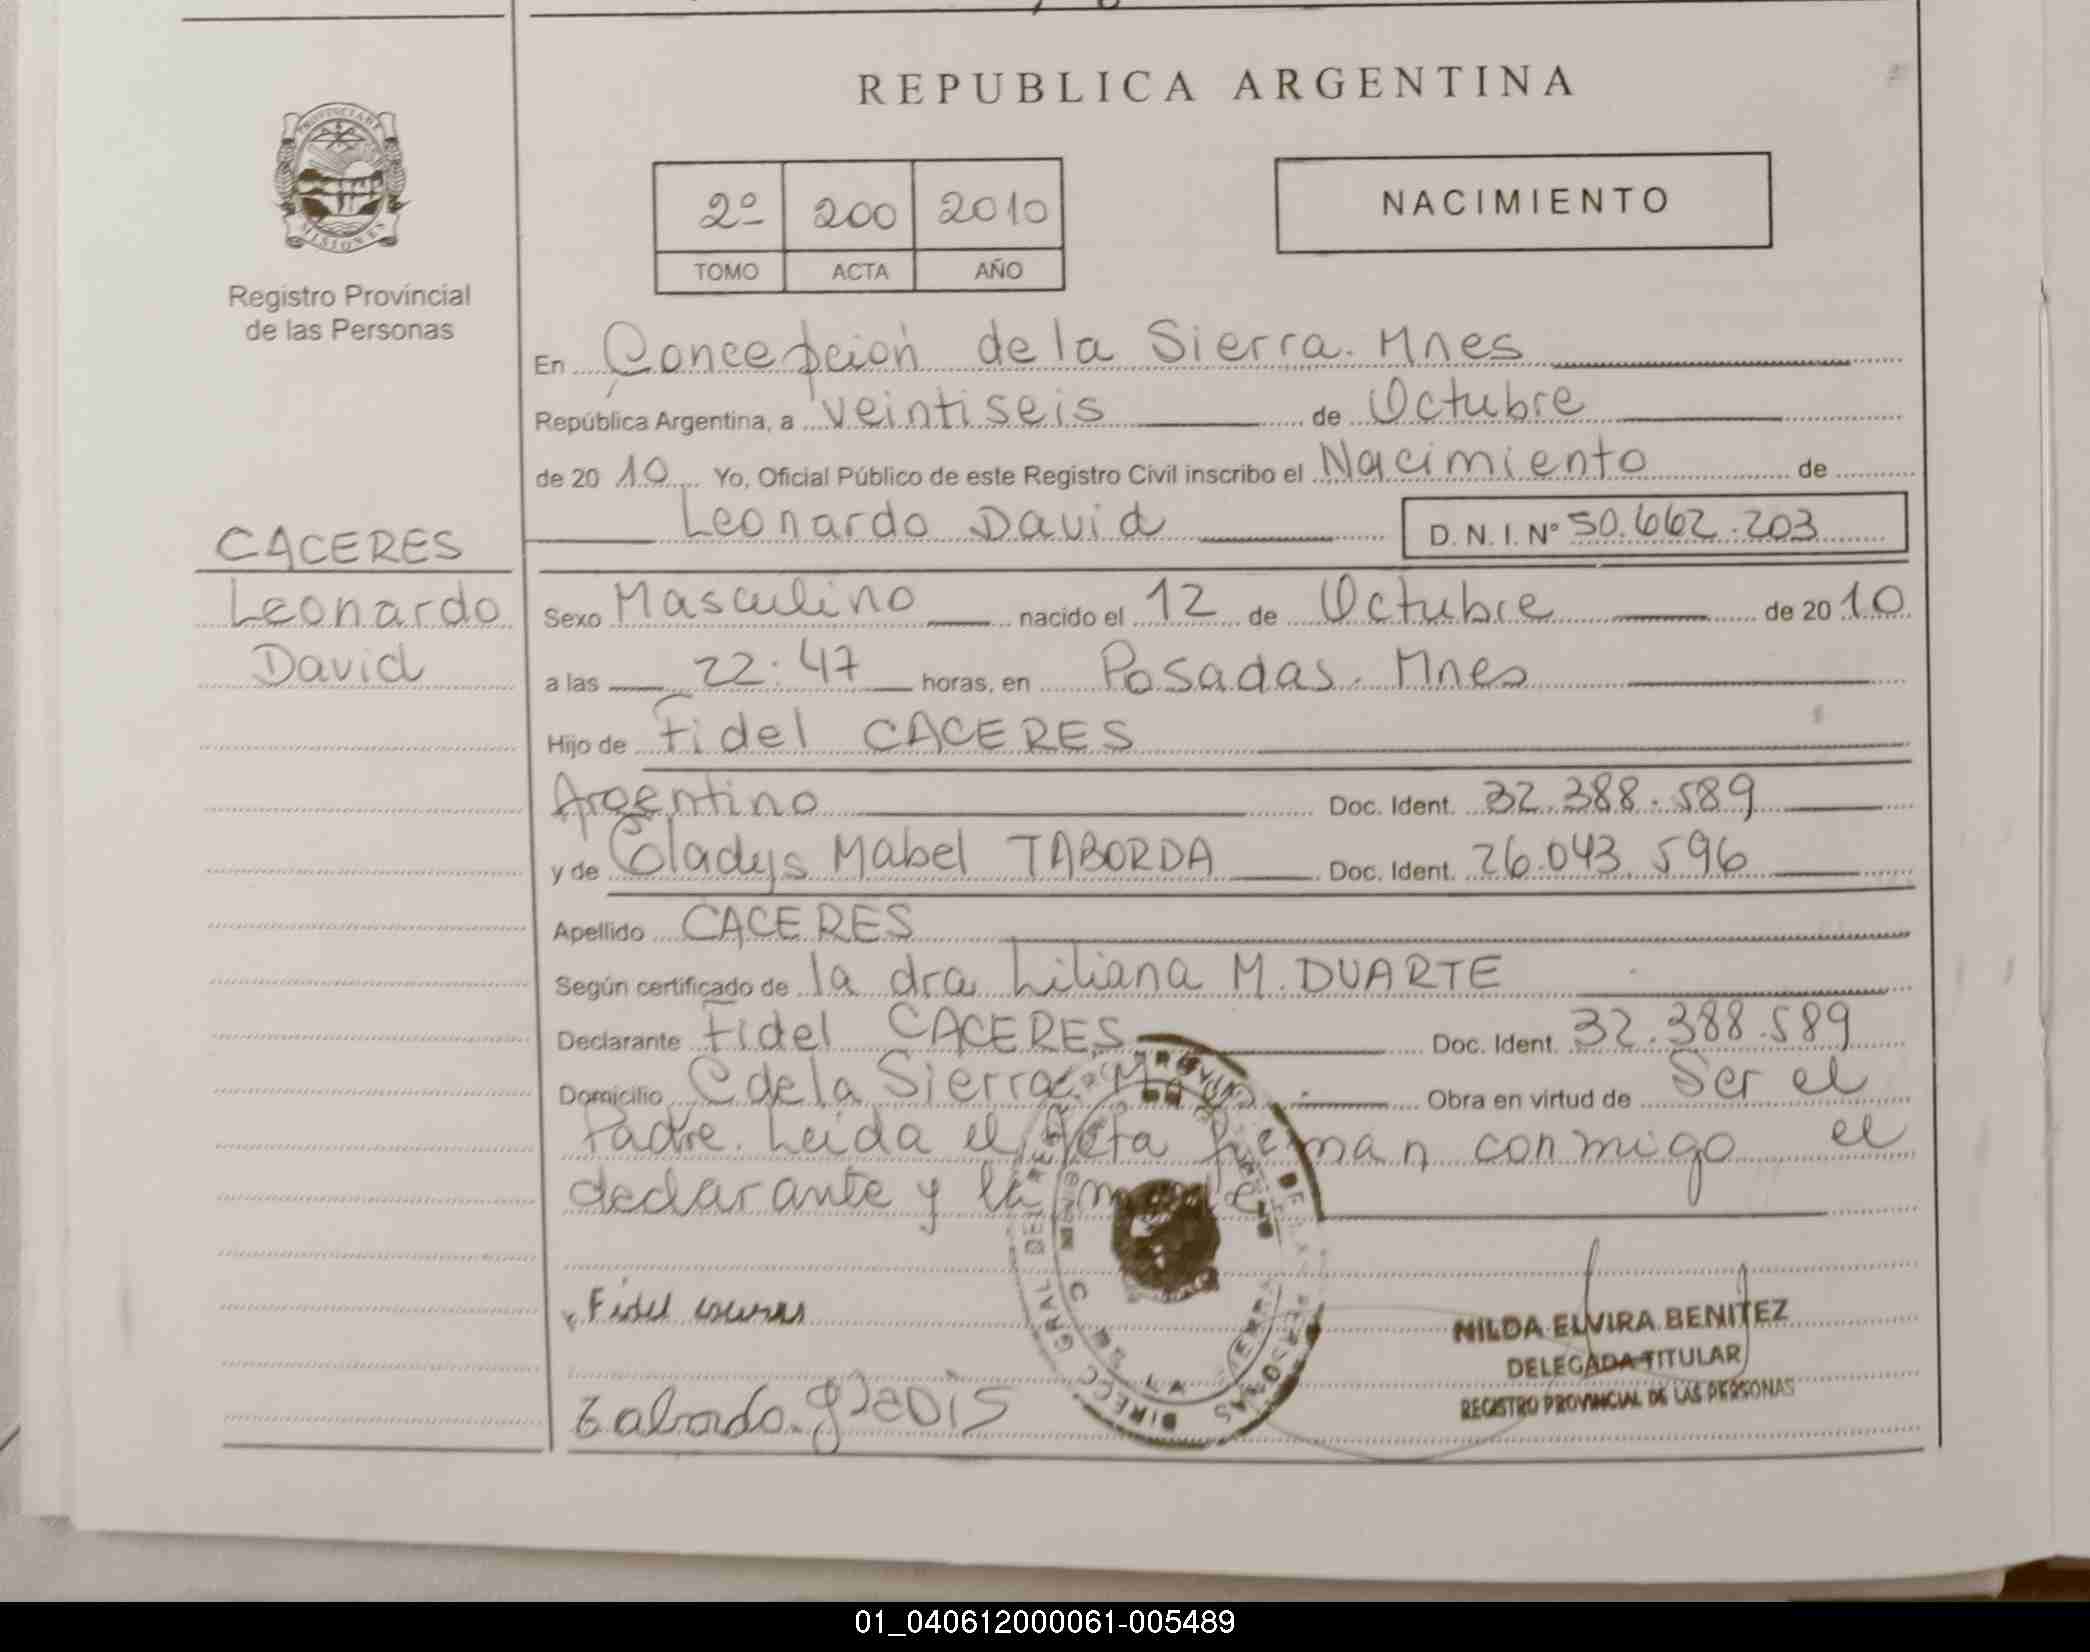 REPUBLICA ARGENTINA
PROVINCIA DE MISIONES
Registro Provincial
de las Personas
2º 200 2010
TOMO ACTA AÑO
NACIMIENTO
En Concepcion de la Sierra. Mnes
República Argentina, a veintiseis de Octubre
de 2010 Yo, Oficial Público de este Registro Civil inscribo el Nacimiento de
Leonardo David D.N.I. Nº 50.662.203
CACERES
Leonardo
David
Sexo Masculino nacido el 12 de Octubre de 2010
a las 22:47 horas, en Posadas. Mnes
Hijo de Fidel CACERES
Argentino Doc. Ident. 32.388.589
y de Gladys Mabel TABORDA Doc. Ident. 26.043.596
Apellido CACERES
Según certificado de la dra Liliana M. DUARTE
Declarante Fidel CACERES Doc. Ident. 32.388.589
Domicilio C de la Sierra. Obra en virtud de Ser el
Padre. Leida el Acta firman conmigo el
declarante y la madre
Fidel
NILDA ELVIRA BENITEZ
DELEGADA TITULAR
REGISTRO PROVINCIAL DE LAS PERSONAS
01_040612000061-005489